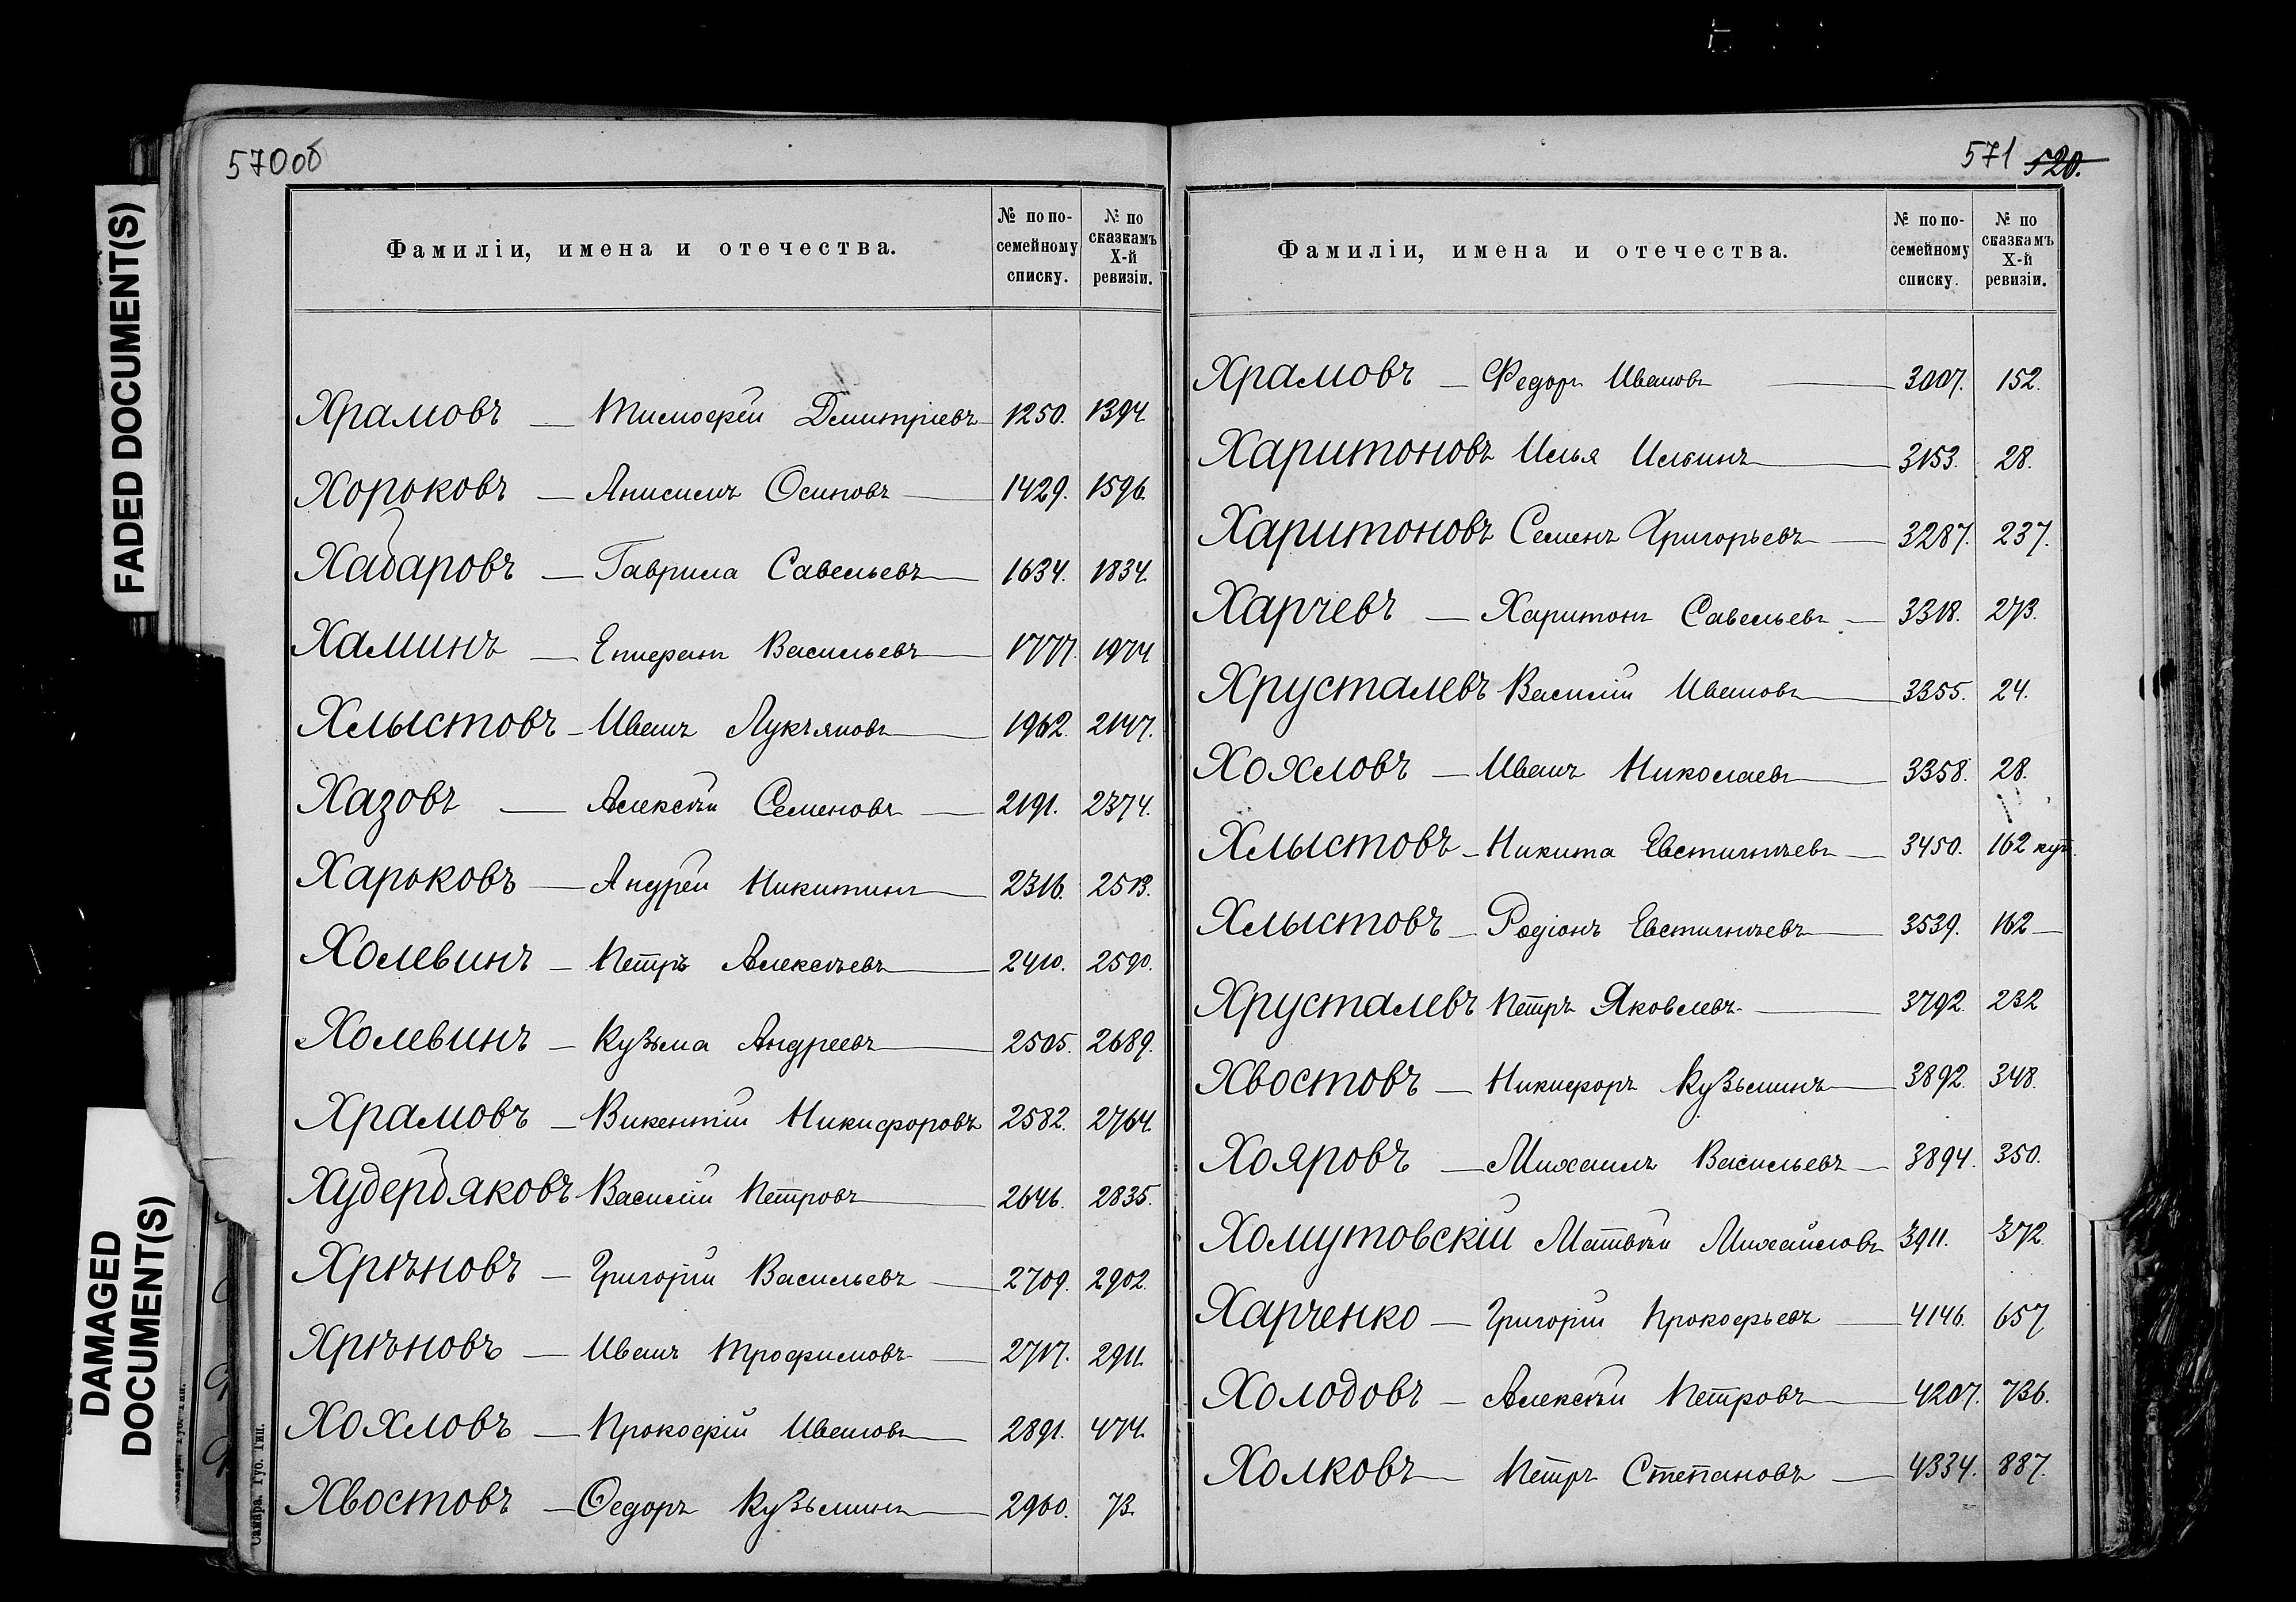 FADED DOCUMENT(S)
DAMAGED DOCUMENT(S)
570об
Фамиліи, имена и отечества.
№ по посемейному списку.
№ по сказкамъ X-й ревизіи.
Храмовъ — Тимофей Дмитріевъ 1250. 1394
Хорьковъ — Анисимъ Осиповъ — 1429. 1596.
Хабаровъ — Гаврила Савельевъ — 1634. 1834.
Хаминъ — Епифанъ Васильевъ — 1777. 1974
Хлыстовъ — Иванъ Лукъяновъ — 1962. 2147.
Хазовъ — Алексѣй Семеновъ — 2191. 2374.
Харьковъ — Андрей Никитинъ — 2316. 2513.
Холевинъ — Петръ Алексѣевъ — 2410. 2590.
Холевинъ — Кузьма Андреевъ — 2505. 2689.
Храмовъ — Викентій Никифоровъ 2582. 2764.
Худердяковъ Василій Петровъ — 2646. 2835.
Хрѣновъ — Григорій Васильевъ — 2709. 2902.
Хрѣновъ — Иванъ Трофимовъ — 2717. 2911.
Хохловъ — Прокофій Ивановъ — 2891. 474.
Хвостовъ — Ѳедоръ Кузьминъ — 2960. 73.
Самара. Губ. Тип.
571 520.
Фамиліи, имена и отечества.
№ по посемейному списку.
№ по сказкамъ X-й ревизіи.
Храмовъ — Федоръ Ивановъ — 3007. 152.
Харитоновъ Илья Ильинъ — 3153. 28.
Харитоновъ Семенъ Григорьевъ — 3287. 237.
Харчевъ — Харитонъ Савельевъ — 3318. 273.
Хрусталевъ Василій Ивановъ — 3355. 24.
Хохловъ — Иванъ Николаевъ — 3358. 28.
Хлыстовъ — Никита Евстигнѣевъ — 3450. 162 куп.
Хлыстовъ — Родіонъ Евстигнѣевъ — 3539. 162 —
Хрусталевъ Петръ Яковлевъ — 3792. 232
Хвостовъ — Никифоръ Кузьминъ — 3892. 348.
Хояровъ — Михаилъ Васильевъ — 3894. 350.
Хомутовскій Матвѣй Михайловъ 3911. 372.
Харченко — Григорій Прокофьевъ — 4146. 657
Холодовъ — Алексѣй Петровъ — 4207. 736.
Холковъ — Петръ Степановъ — 4334. 887.